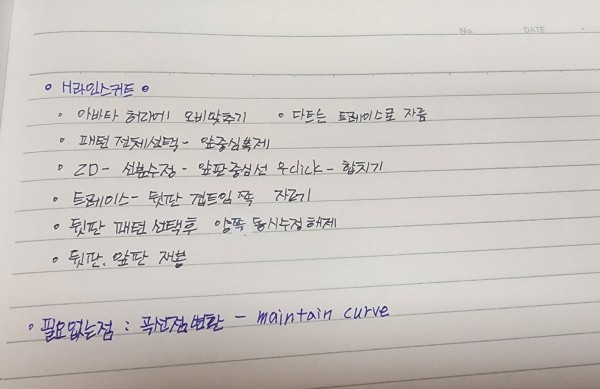 No.
DATE
H라인스커트
아바타 허리에 오비맞추기 다트는 트레이스로 자름
패턴 전체선택 - 앞중심복제
2D - 선분수정 - 앞판중심선 우click - 합치기
트레이스 - 뒷판 겹트임 쪽 자르기
뒷판 패턴 선택후 양쪽 동시수정 해제
뒷판. 앞판 재봉
필요없는점 : 곡선점변환 - maintain curve